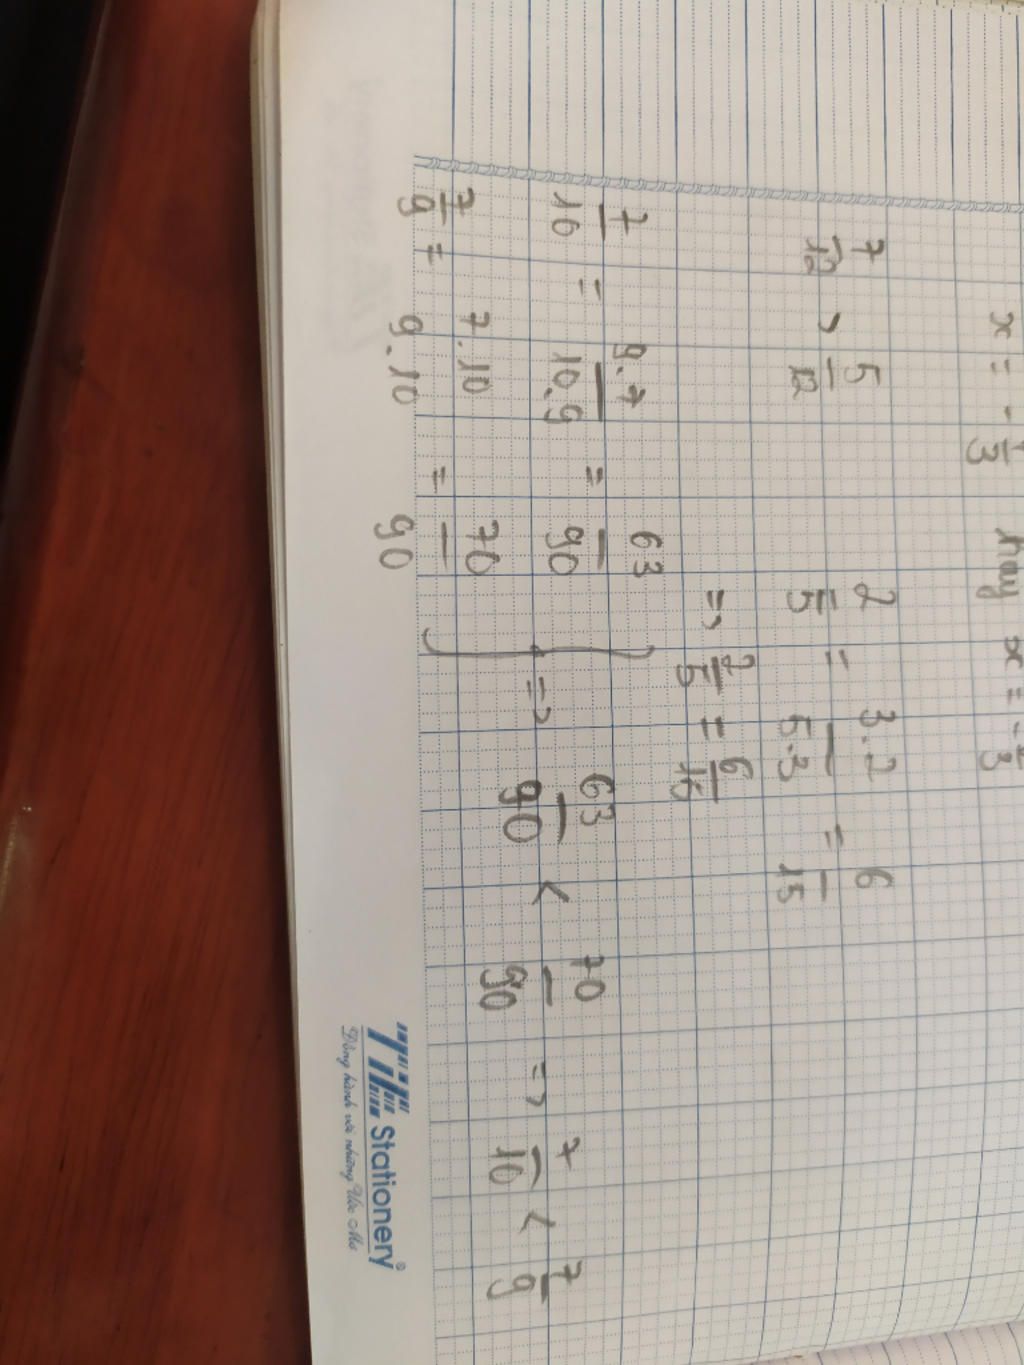 x = - 1/3 hay x = - 1/3
7/12 > 5/12
2/5 = 3.2/5.3 = 6/15
=> 2/5 = 6/15
7/10 = 9.7/10.9 = 63/90
7/9 = 7.10/9.10 = 70/90
=> 63/90 < 70/90 => 7/10 < 7/9
Stationery
Đồng hành với những Ước Mơ